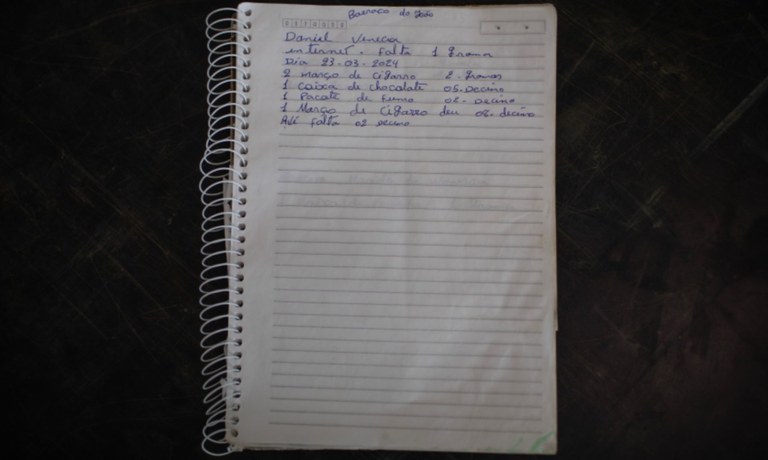 Barraco do João
Daniel
internet. falta 1 grama
Dia 23-03-2024
2 março de cigarro 2-gramas
1 caixa de chocolate 05-Decimo
1 Pacate de fumo 06-Decimo
1 Março de cigarro deu 08-decimo
falta 02 decimo